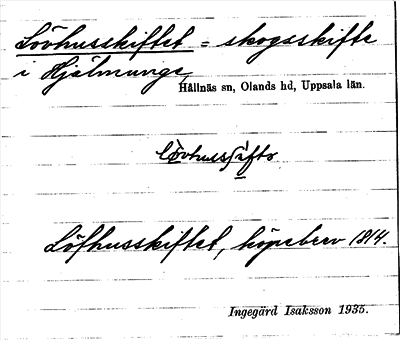 Lövhusskiftet = skogsskifte
i Hjälmunge
Hållnäs sn, Olands hd, Uppsala län.
Löfhusskiftet, köpebrev 1814.
Ingegärd Isaksson 1935.